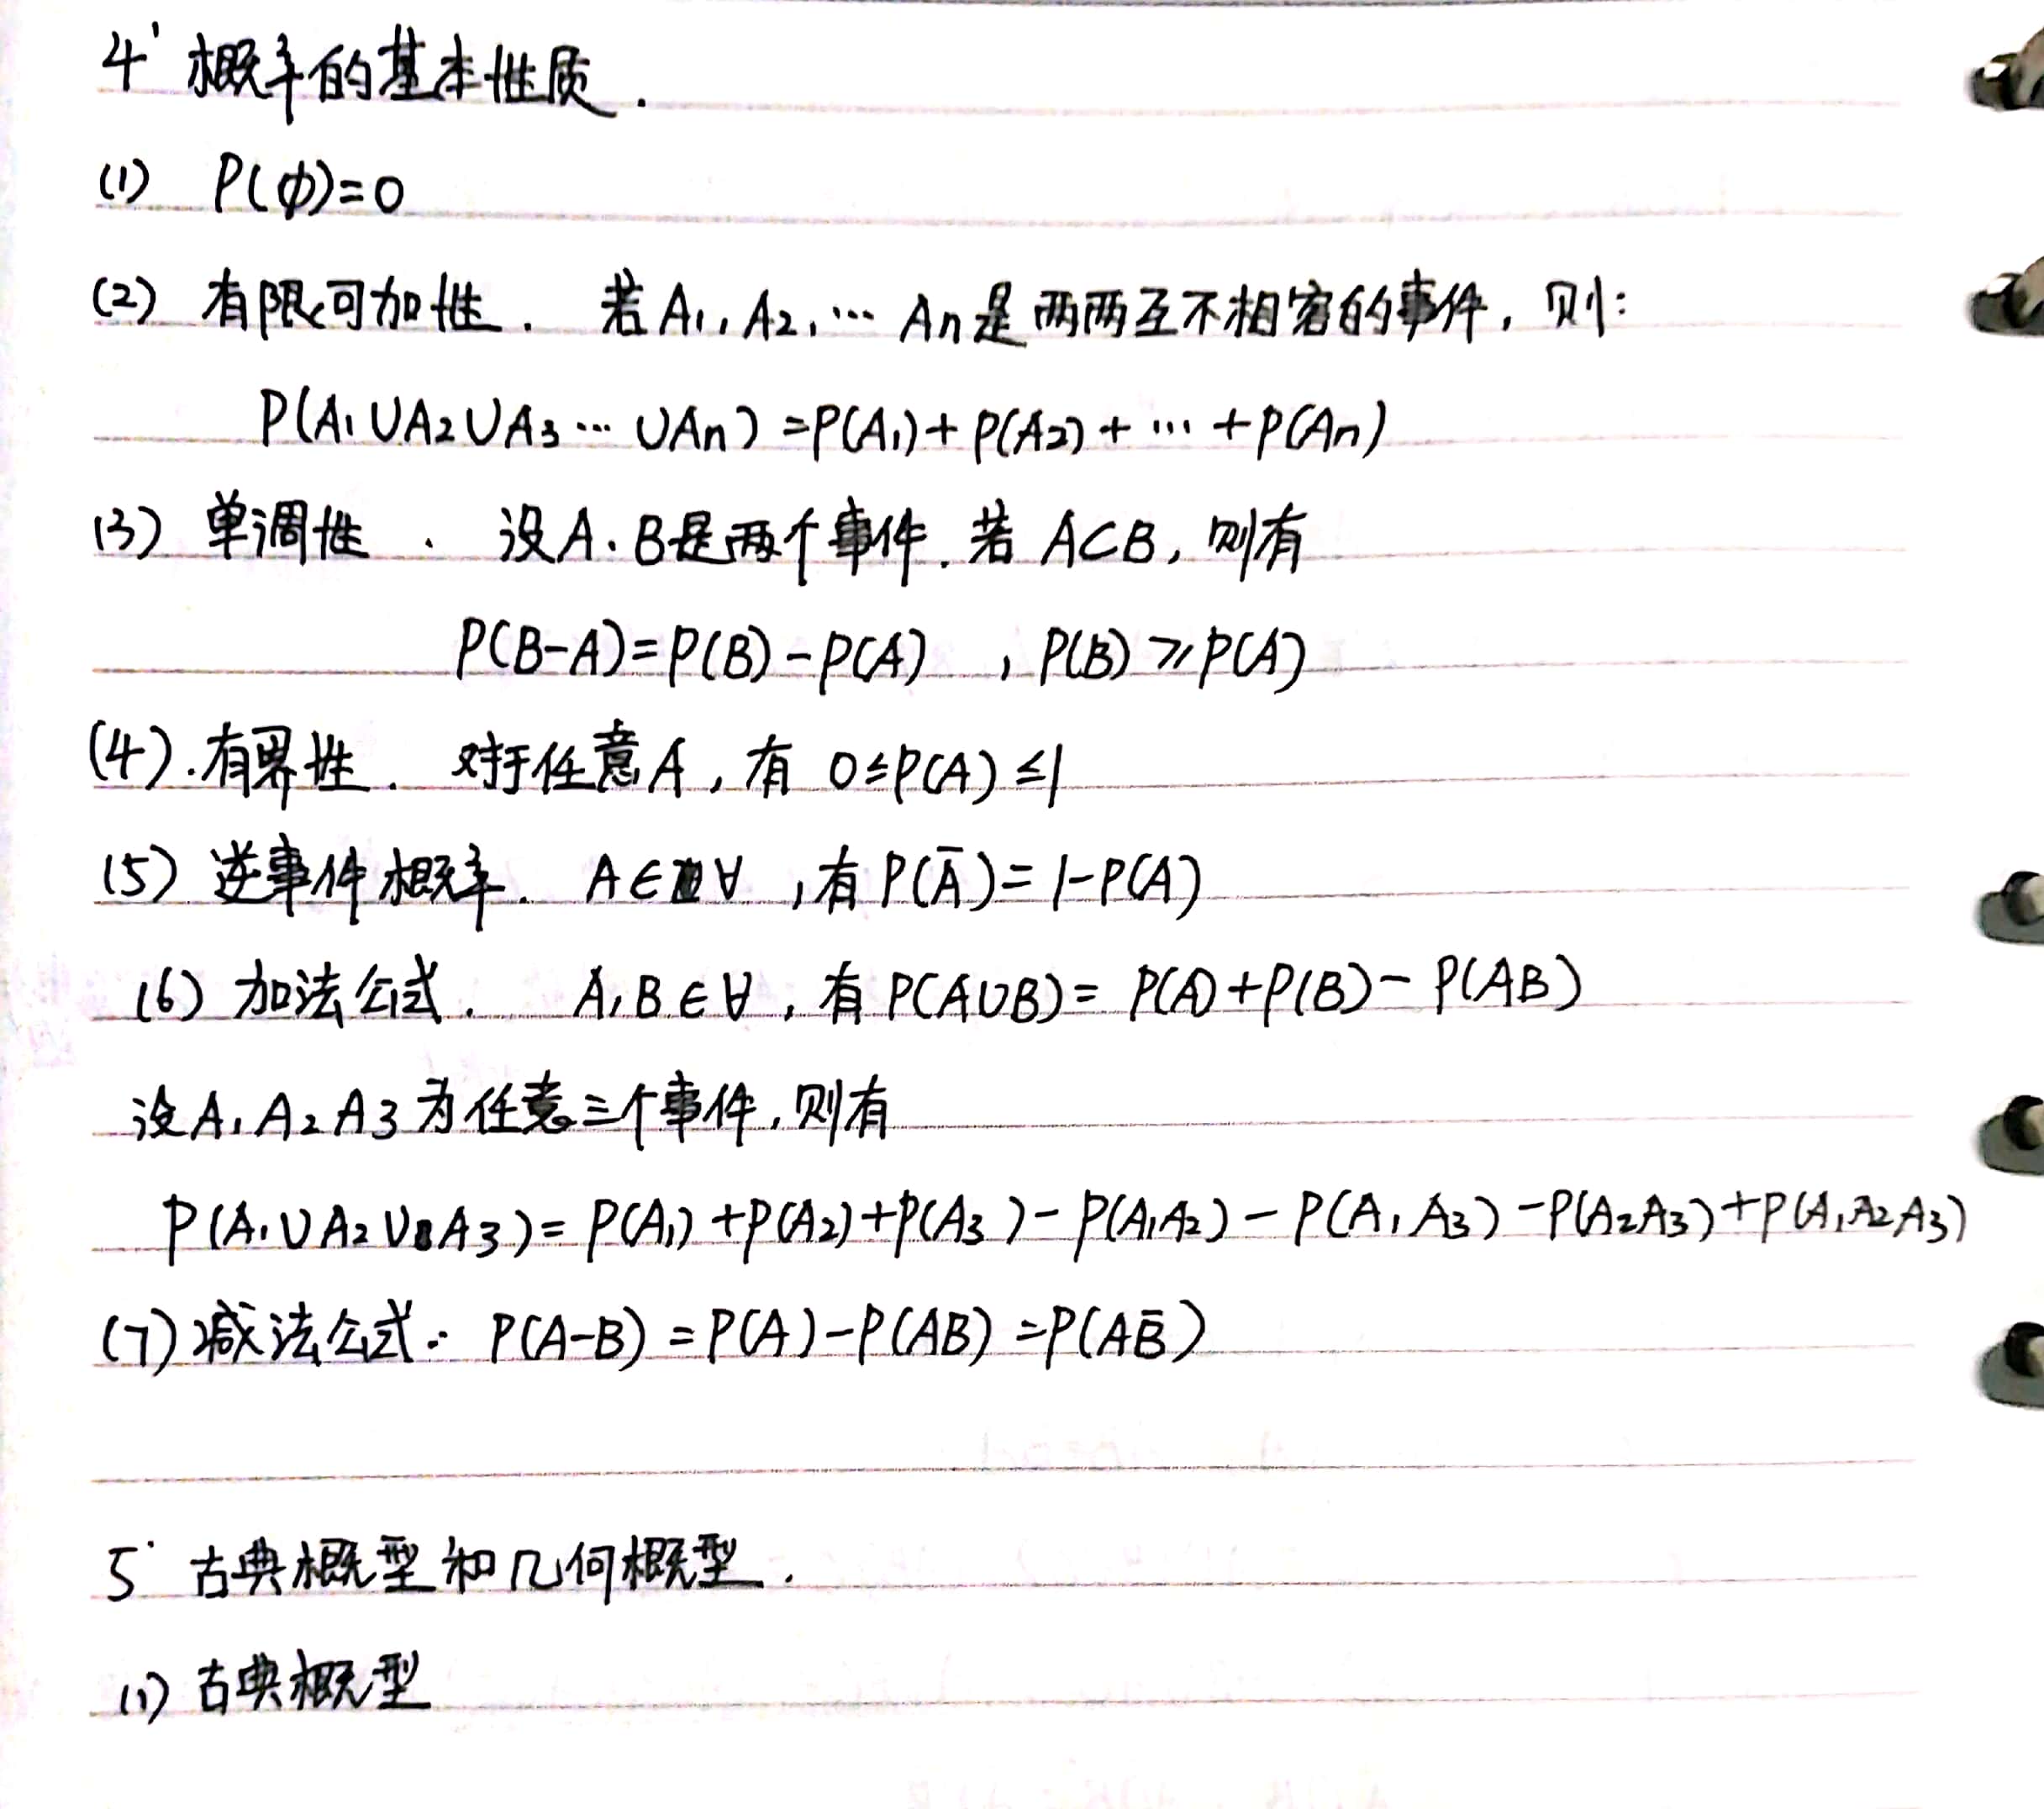 4' 概率的基本性质.
(1) P(φ)=0
(2) 有限可加性. 若A1, A2, … An是两两互不相容的事件, 则:
P(A1∪A2∪A3…∪An)=P(A1)+P(A2)+…+P(An)
(3) 单调性. 设A.B是两个事件.若 A⊂B, 则有
P(B-A)=P(B)-P(A) , P(B)≥P(A)
(4).有界性. 对于任意A, 有 0≤P(A)≤1
(5) 逆事件概率. A∈∀ ,有P(Ā)=1-P(A)
(6) 加法公式. A,B∈∀, 有P(A∪B)= P(A)+P(B)-P(AB)
设A1A2A3为任意三个事件,则有
P(A1∪A2∪A3)=P(A1)+P(A2)+P(A3)-P(A1A2)-P(A1A3)-P(A2A3)+P(A1A2A3)
(7)减法公式: P(A-B)=P(A)-P(AB)=P(AB̄)
5' 古典概型和几何概型.
(1) 古典概型